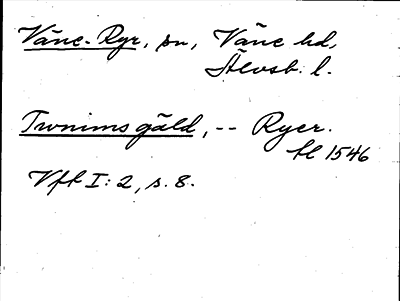 Väne-Ryr, sn, Väne hd,
Älvsb. l.
Twnims gäld, -- Ryer.
tl 1546
Vft I: 2, s. 8.